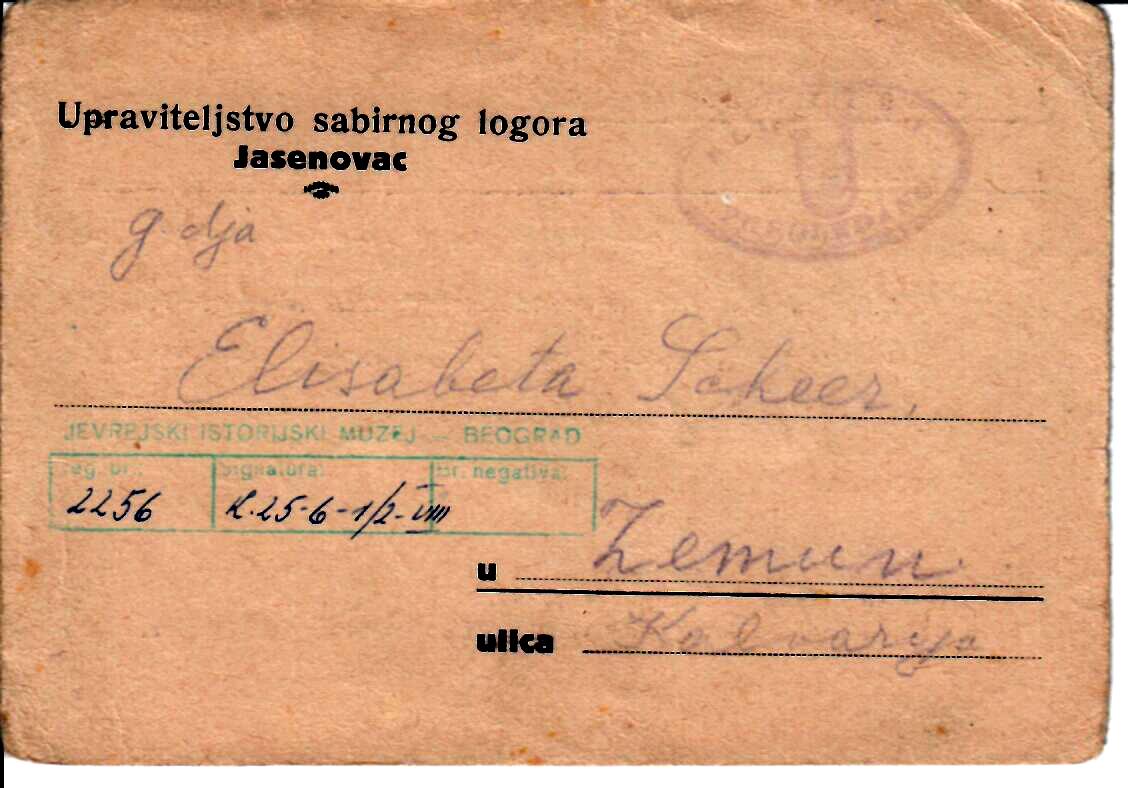 Upraviteljstvo sabirnog logora
Jasenovac
U
gdja
Elisabeta Scheer,
JEVREJSKI ISTORIJSKI MUZEJ — BEOGRAD
Reg. br.: Signatura: Br. negativa:
2256 K.25-6-1/2-VIII
u Zemun
ulica Kalvarija